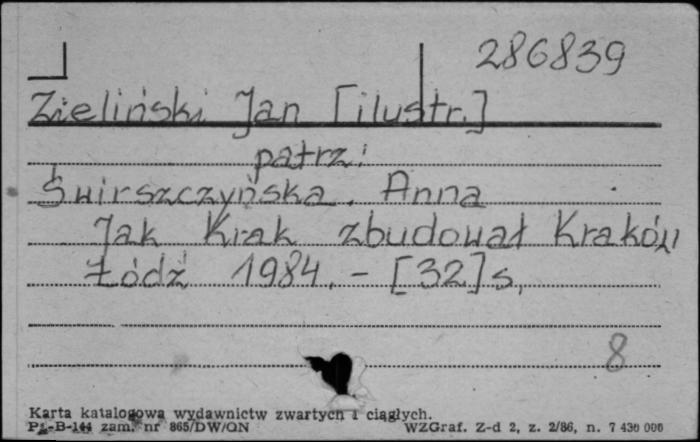 286839
Zieliński Jan [ilustr.]
patrz:
Świrszczyńska. Anna
Jak Krak zbudował Kraków
Łódź 1984. - [32] s.
8
Karta katalogowa wydawnictw zwartych i ciągłych.
Pi-B-144 zam. nr 865/DW/ON WZGraf. Z-d 2, z. 2/86, n. 7 430 000